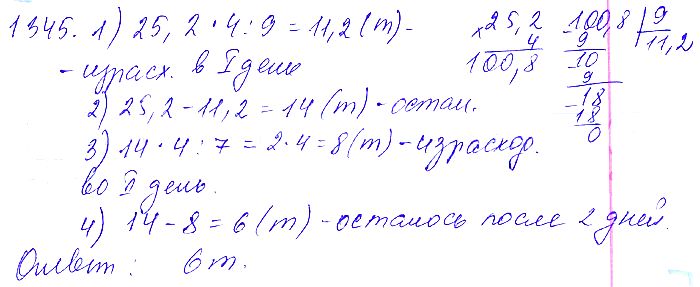 1345. 1) 25,2 · 4 : 9 = 11,2 (т) -
- израсх. в I день
2) 25,2 - 11,2 = 14 (т) - остал.
3) 14 · 4 : 7 = 2 · 4 = 8 (т) - израсход.
во II день.
4) 14 - 8 = 6 (т) - осталось после 2 дней.
Ответ : 6 т.
× 25,2
4
100,8
- 100,8 | 9
9 11,2
- 10
9
- 18
18
0